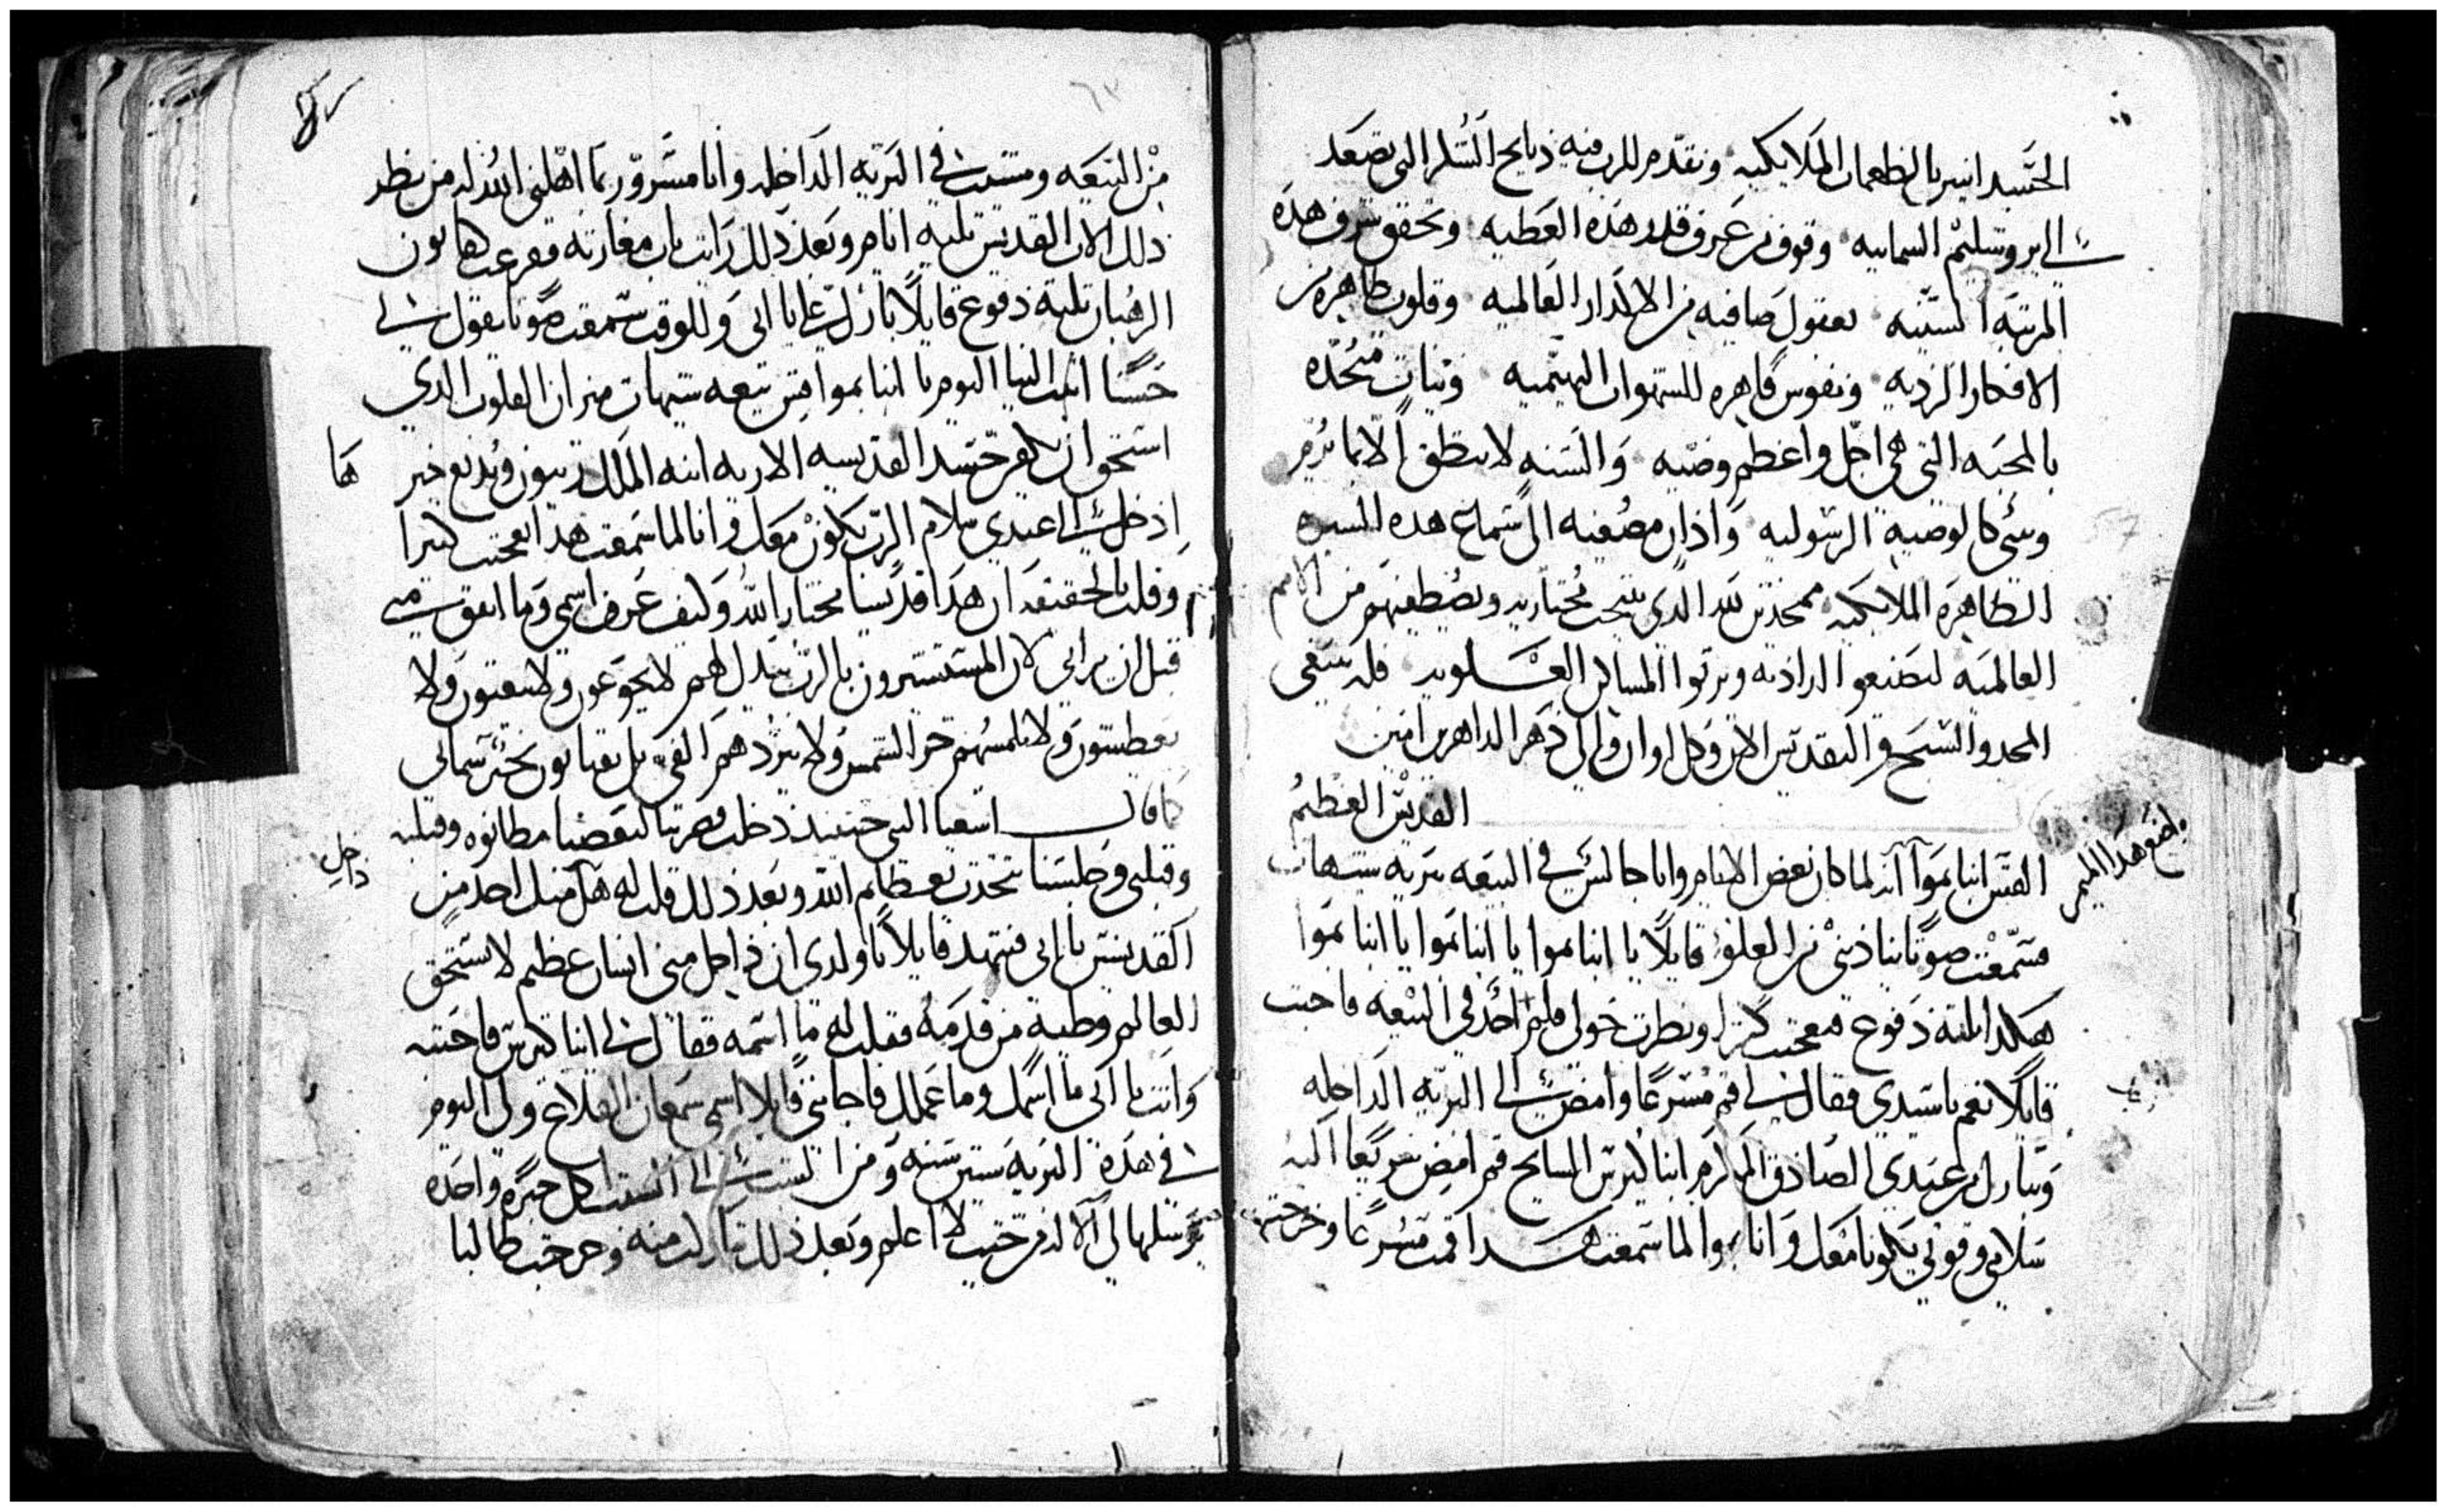 الجسد انير بالطغمات الملايكيه ونقدم للرب فيه ذبايح الشكر التي تصعد
الي يروشليم السمايه وقوف من عرف قدر هذه العطيه وتحقق شرف هذه
المرتبه السنيه بعقول صافيه من الاكدار العالميه وقلوب طاهره من
الافكار الرديه ونفوس قاهره للشهوات البهيميه ونيات متحده
بالمحبه التي هي اجل واعظم وصيه والسنه لا تنطق الا بما
كالوصيه الرسوليه واذان مصغيه الي سماع هذه السيره
الطاهره الملايكيه ممجدين لله الذي ينتخب مختاريه ويصطفيهم من الامم
العالميه ليصنعوا ارادته ويرثوا المساكن العلويه فله ينبغي
المجد والتسبيح والتقديس الان وكل اوان والي دهر الداهرين امين
القديس العظيم
القس انبا بموا انه لما كان بعض الايام وانا جالس في البيعه ببريه شيهات
فسمعت صوتا يناديني من العلو قايلا يا انبا بموا يا انبا بموا يا انبا بموا
هكدا ثلثه دفوع فتعجبت كثيرا ونظرت حولي فلم احد في البيعه فاجبت
قايلا نعم يا سيدي فقال لي قم مسرعا وامض الي البريه الداخله
وتبارك من عبدي الصادق المكرم انبا كيرس السايح قم امض سريعا اليه
سلامي وقوتي يكونا معك وانا بموا لما سمعت هكدا قمت مسرعا وخرجت
اصنع هدا الميمر
٦٣
من البيعه ومشيت في البريه الداخله وانا مسرور بما اهلني الله له من نظر
ذلك الاب القديس ثلثه ايام وبعد ذلك رايت باب مغارته فقرعت كما قانون
الرهبان ثلثه دفوع قايلا بارك علي يا ابي وللوقت سمعت صوتا يقول لي
حسنا اتيت الينا اليوم يا انبا بموا قس بيعه شيهات ميزان القلوب الدي
استحق ان يكفن جسد القديسه الاريه ابنة الملك زينون
ها
ادخل الي عبدي سلام الرب يكون معك وانا لما سمعت هدا تعجبت كثيرا
وقلت بالحقيقه ان هذا قديسا مختار الله وكيف عرف اسمي وما اتفق مني
قبل ان يراني لان المستبشرون بالرب يبدل لهم لا يجوعون ولا يتعبون ولا
يعطشون ولا يلمسهم حر الشمس ولا يبردهم الفي بل يقتاتون بخبز سمايي
كما قال اشعيا النبي حينيد دخلت وضربنا لبعضنا مطانوه وقبلته
وقبلني وجلسنا نتحدث بعظايم الله وبعد ذلك قلت له هل مثلك احد من
داخل
القديسين يا ابي فتنهد قايلا يا ولدي ان داخل مني انسان عظيم لا يستحق
العالم وطية من قدمه فقلت له ما اسمه فقال لي انبا كيرس فاجبته
وانت يا ابي ما اسمك وما عملك فاجابني قايلا اسمي سمعان القلاع ولي اليوم
في هذه البريه ستين سنه ومن السبت الي السبت اكل خبزه واحده
يرسلها لي الاله من حيث لا اعلم وبعد ذلك تباركت منه وخرجت طالبا